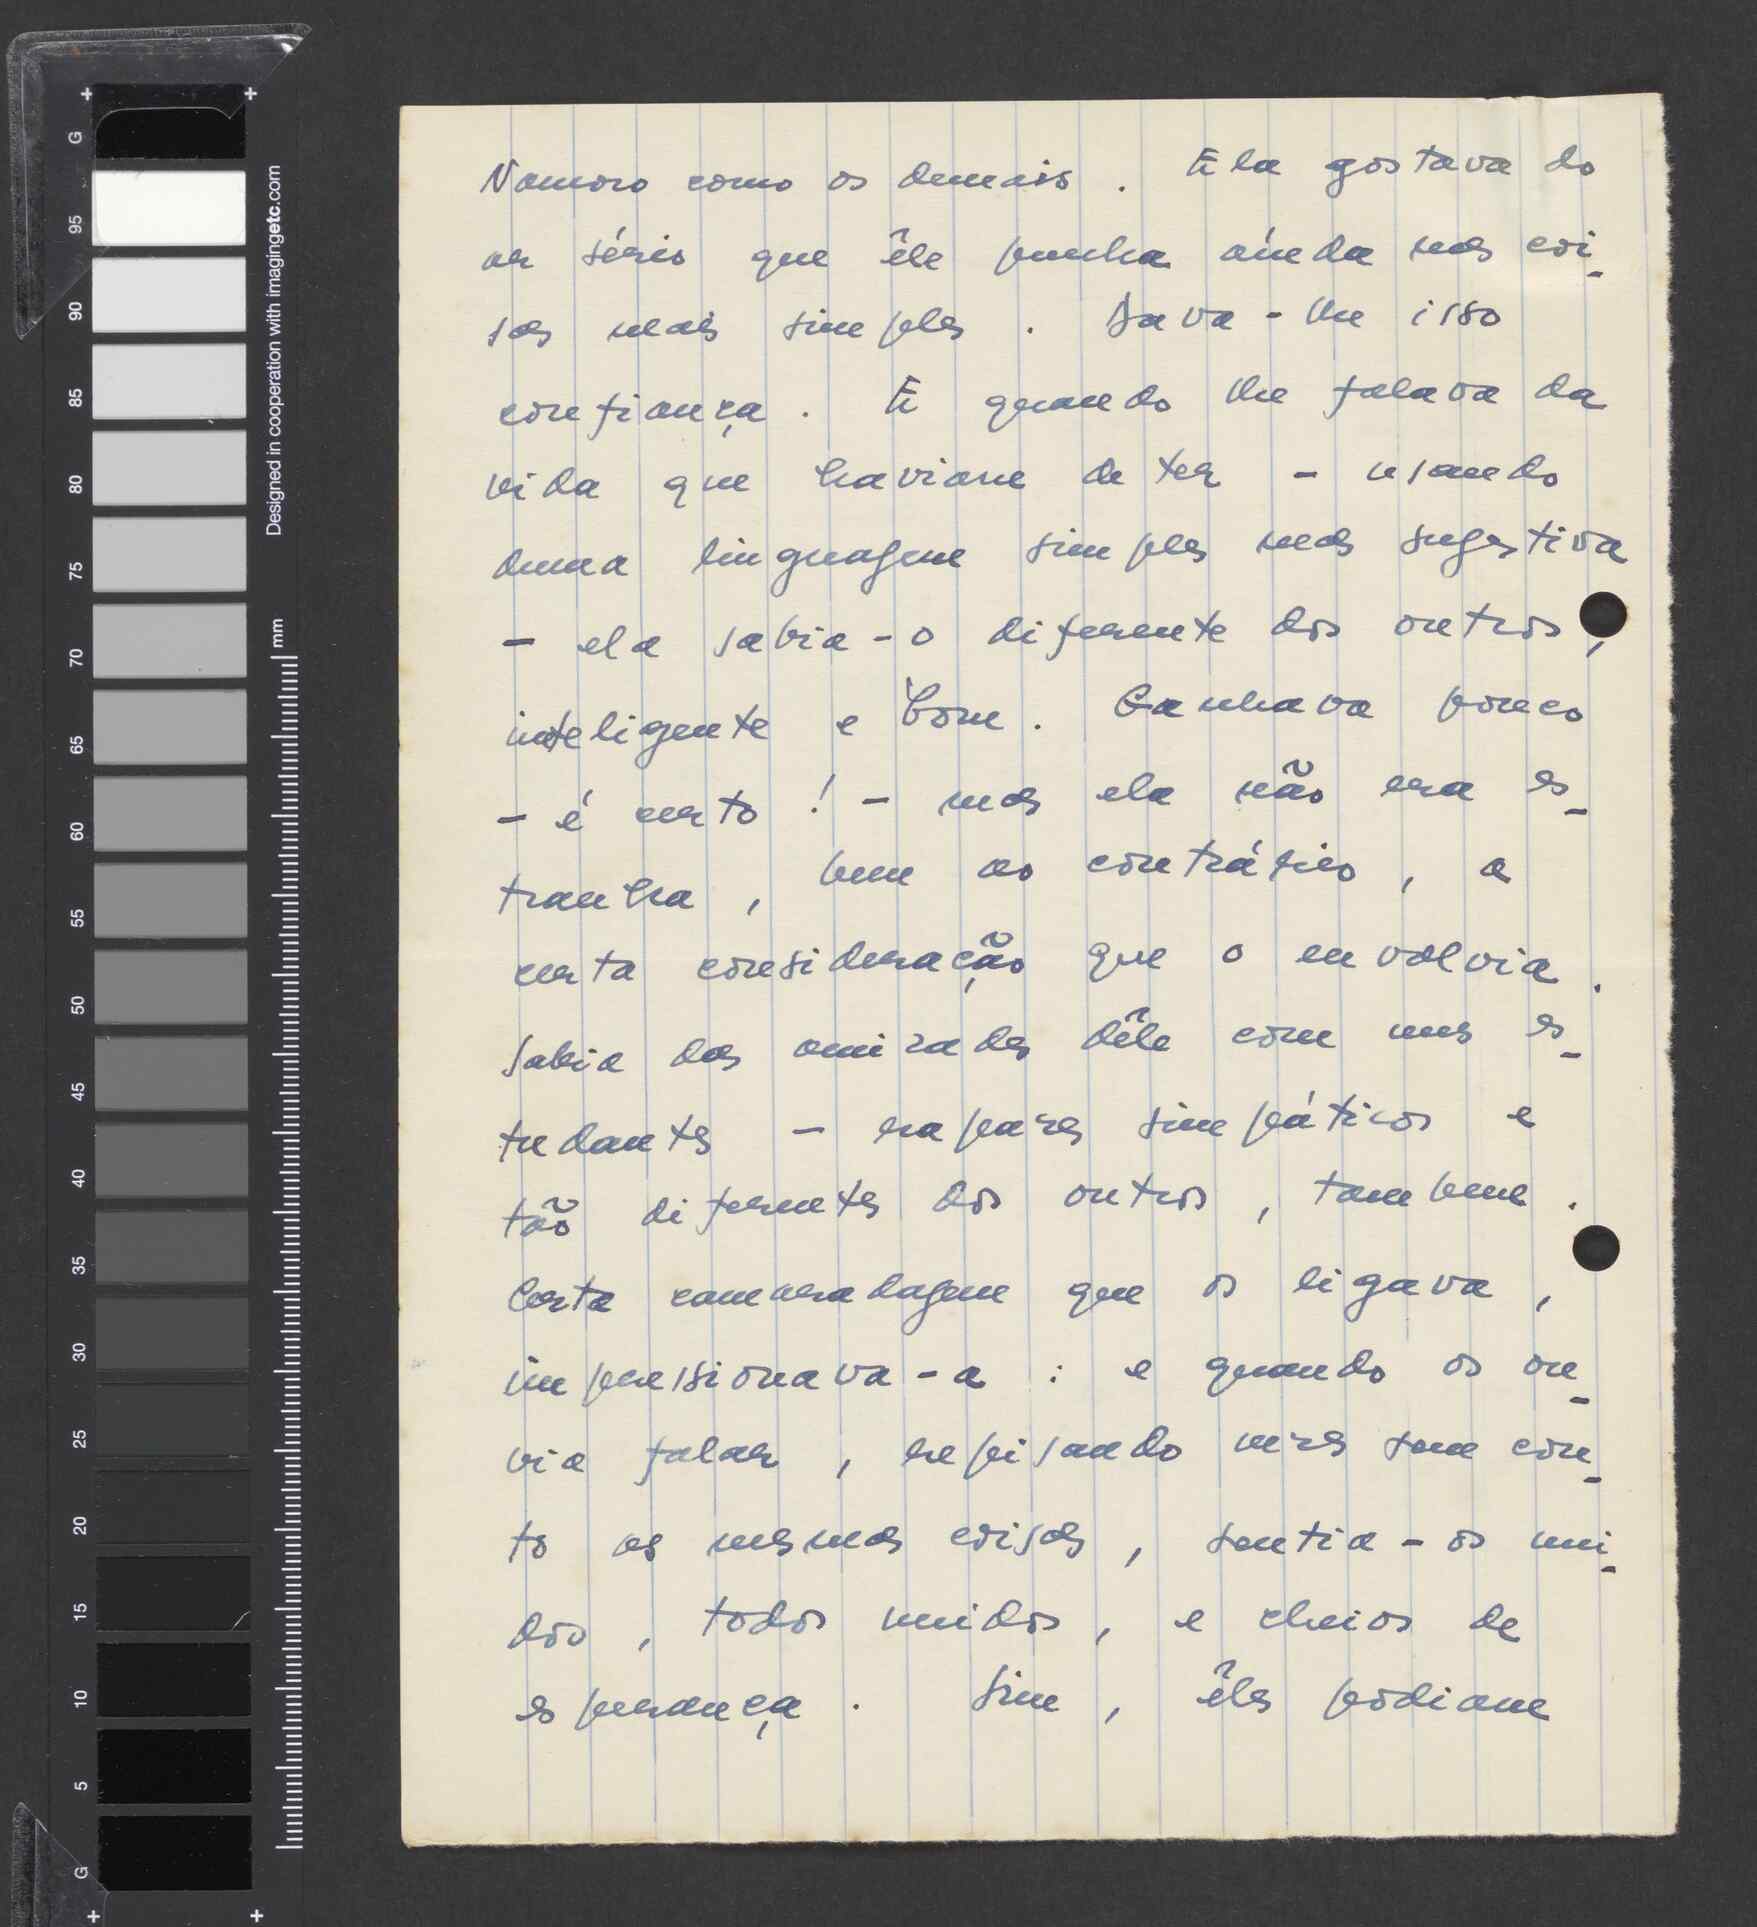 Namoro como os demais. Ela gostava do
ar sério que êle punha aínda nas coi-
sas mais simples. Dava-lhe isso
confiança. E quando lhe falava da
vida que haviam de ter - usando
duma linguagem simples mas sugestiva
- ela sabia-o diferente dos outros,
inteligente e bom. Ganhava pouco
- é certo! - mas ela não era es-
tranha, bem ao contrário, a
certa consideração que o envolvia.
Sabia das amizades dêle com uns es-
tudantes - rapazes simpáticos e
tão diferentes dos outros, tambem.
Certa camaradagem que os ligava,
impressionava-a: e quando os ou-
via falar, repisando vezes sem con-
to as mesmas coisas, sentia-os uni-
dos, todos unidos, e cheios de
esperança. Sim, êles podiam
G
95
90
85
80
75
70
65
60
55
50
45
40
35
30
25
20
15
10
5
G
mm
Designed in cooperation with imagingetc.com